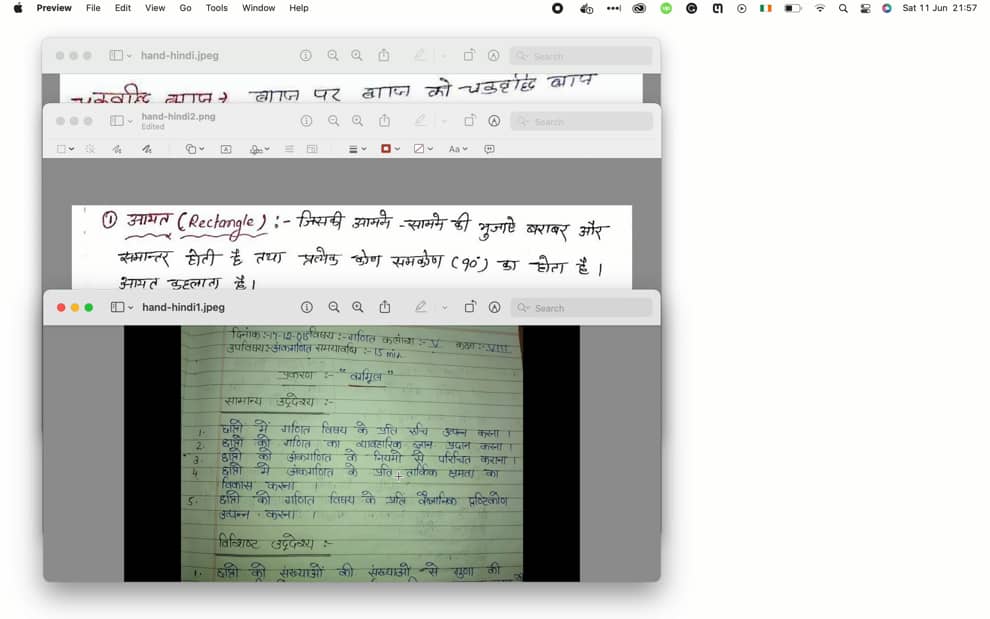 Preview File Edit View Go Tools Window Help
Sat 11 Jun 21:57
hand-hindi.jpeg
Search
चक्रवृद्धि ब्याज → ब्याज पर ब्याज को चक्रवृद्धि ब्याज
hand-hindi2.png
Edited
Search
Aa
① आयत (Rectangle) :- जिसकी आमने-सामने की भुजाएं बराबर और
समान्तर होती है तथा प्रत्येक कोण समकोण (90°) का होता है।
आयत कहलाता है।
hand-hindi1.jpeg
Search
विषय :- गणित कक्षा :- VIII
उपविषय:- अंकगणित समयावधि :- 15 min.
प्रकरण :- "वर्गमूल"
सामान्य उद्देश्य :-
1. छात्रों में गणित विषय के प्रति रुचि उत्पन्न करना ।
2. छात्रों को गणित का व्यावहारिक ज्ञान प्रदान करना ।
3. छात्रों को अंकगणित के नियमों से परिचित कराना ।
4. छात्रों में अंकगणित के प्रति तार्किक क्षमता का
विकास करना ।
5. छात्रों को गणित विषय के प्रति वैज्ञानिक दृष्टिकोण
उत्पन्न करना ।
विशिष्ट उद्देश्य :-
1. छात्रों को संख्याओं की संख्याओं से गुणा की